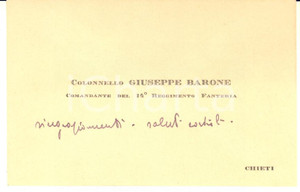 COLONNELLO GIUSEPPE BARONE
COMANDANTE DEL 14° REGGIMENTO FANTERIA
ringraziamenti - saluti cordiali -
CHIETI